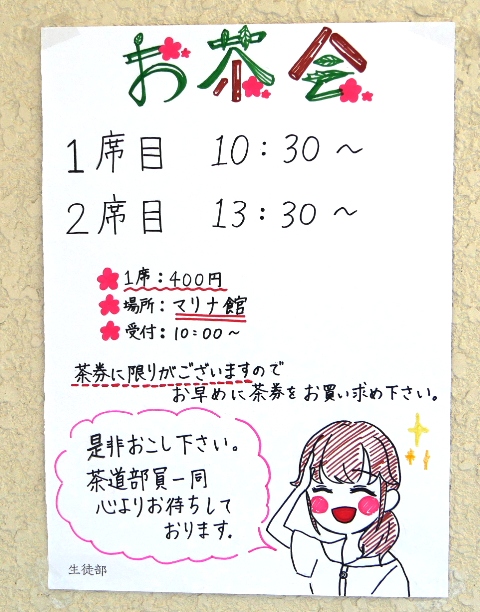 お茶会
1席目 10:30～
2席目 13:30～
1席:400円
場所:マリナ館
受付:10:00～
茶券に限りがございますので
お早めに茶券をお買い求め下さい。
是非おこし下さい。
茶道部員一同
心よりお待ちして
おります。
生徒部